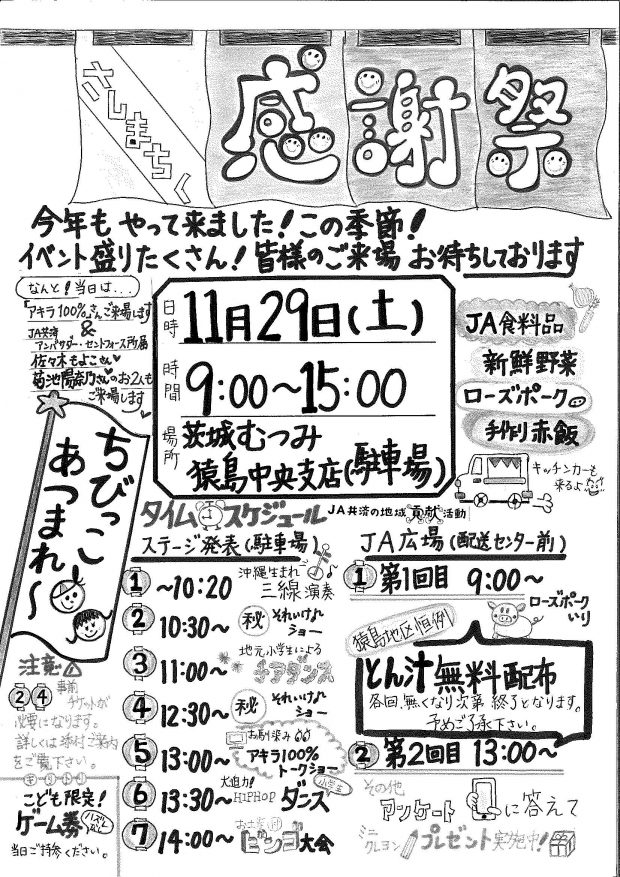 さしまちく
感謝祭
今年も やって来ました！この季節！
イベント盛りたくさん！皆様のご来場 お待ちしております
なんと！当日は...
「アキラ100%」さんご来場します
&
JA共済
アンバサダー・セントフォース所属
佐々木もよこさん
菊池陽奈乃さんのお2人も
ご来場します
日時 11月29日(土)
時間 9:00～15:00
場所 茨城むつみ
猿島中央支店(駐車場)
JA食料品
新鮮野菜
ローズポーク
手作り赤飯
キッチンカーも
来るよ
ちびっこ
あつまれ～
タイムスケジュール
JA共済の地域貢献活動
ステージ発表(駐車場)
1 ～10:20 沖縄生まれ
三線演奏
2 10:30～ 秘 それいけ♪
ショー
3 11:00～ 地元小学生による
チアダンス
4 12:30～ 秘 それいけ♪
ショー
5 13:00～ お馴染み
アキラ100%
トークショー
6 13:30～ 大迫力！
HIPHOP ダンス
7 14:00～
ビンゴ大会
JA広場(配送センター前)
1 第1回目 9:00～
ローズポーク
いり
猿島地区恒例
とん汁無料配布
各回、無くなり次第 終了となります。
予めご了承下さい。
2 第2回目 13:00～
その他
アンケート に答えて
ミニ
クレヨン プレゼント実施中！
注意
2 4 事前
チケットが
必要になります。
詳しくは添付ご案内
をご覧下さい。
きりとり
こども限定！
ゲーム券
ハズレなし
当日ご持参ください。